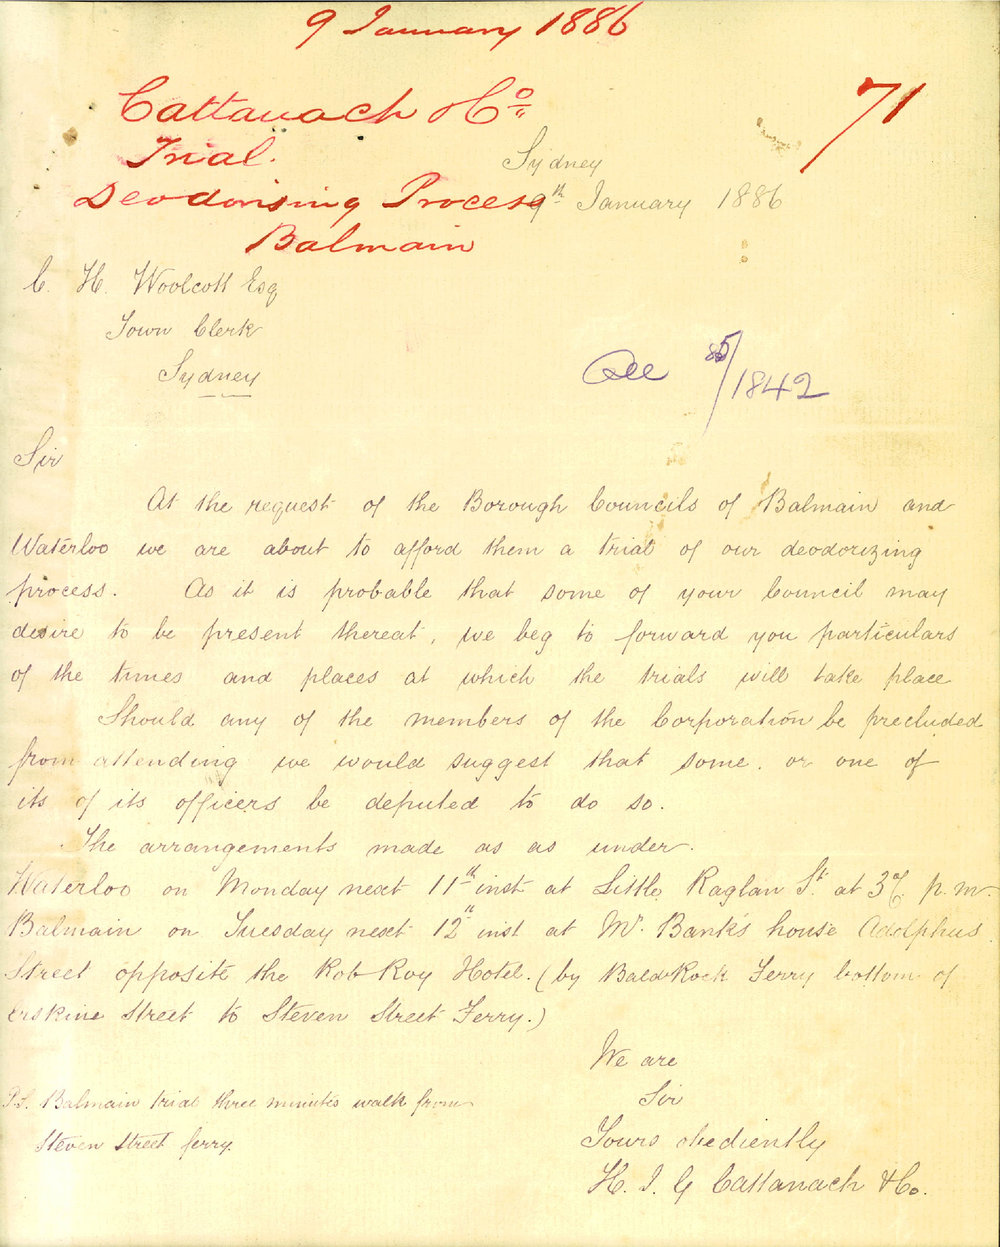 9 January 1886
Cattanach & Co
71
Trial.
Sydney
Deodorising Process
9th January 1886
Balmain
C. H. Woolcott Esq
Town Clerk
Sydney
85/1842
Sir
At the request of the Borough Councils of Balmain and
Waterloo we are about to afford them a trial of our deodorizing
process. As it is probable that some of your Council may
desire to be present thereat, we beg to forward you particulars
of the times and places at which the trials will take place
Should any of the members of the Corporation be precluded
from attending we would suggest that some, or one of
its of its officers be deputed to do so.
The arrangements made as as under.
Waterloo on Monday next 11th inst at Little Raglan St. at 3 p.m.
Balmain on Tuesday next 12th inst at Mr. Bank's house Adolphus
Street opposite the Rob Roy Hotel. (by Bald Rock Ferry bottom of
Erskine Street to Steven Street Ferry.)
We are
Sir
P.S. Balmain trial three minutes walk from
Steven Street ferry.
Yours obediently
H. J. G Cattanach & Co.